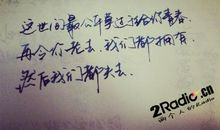 这世间最公平莫过于给你青春
再令你老去，我们都拥有
然后我们都失去.
2Radio.cn
两个人的Radio